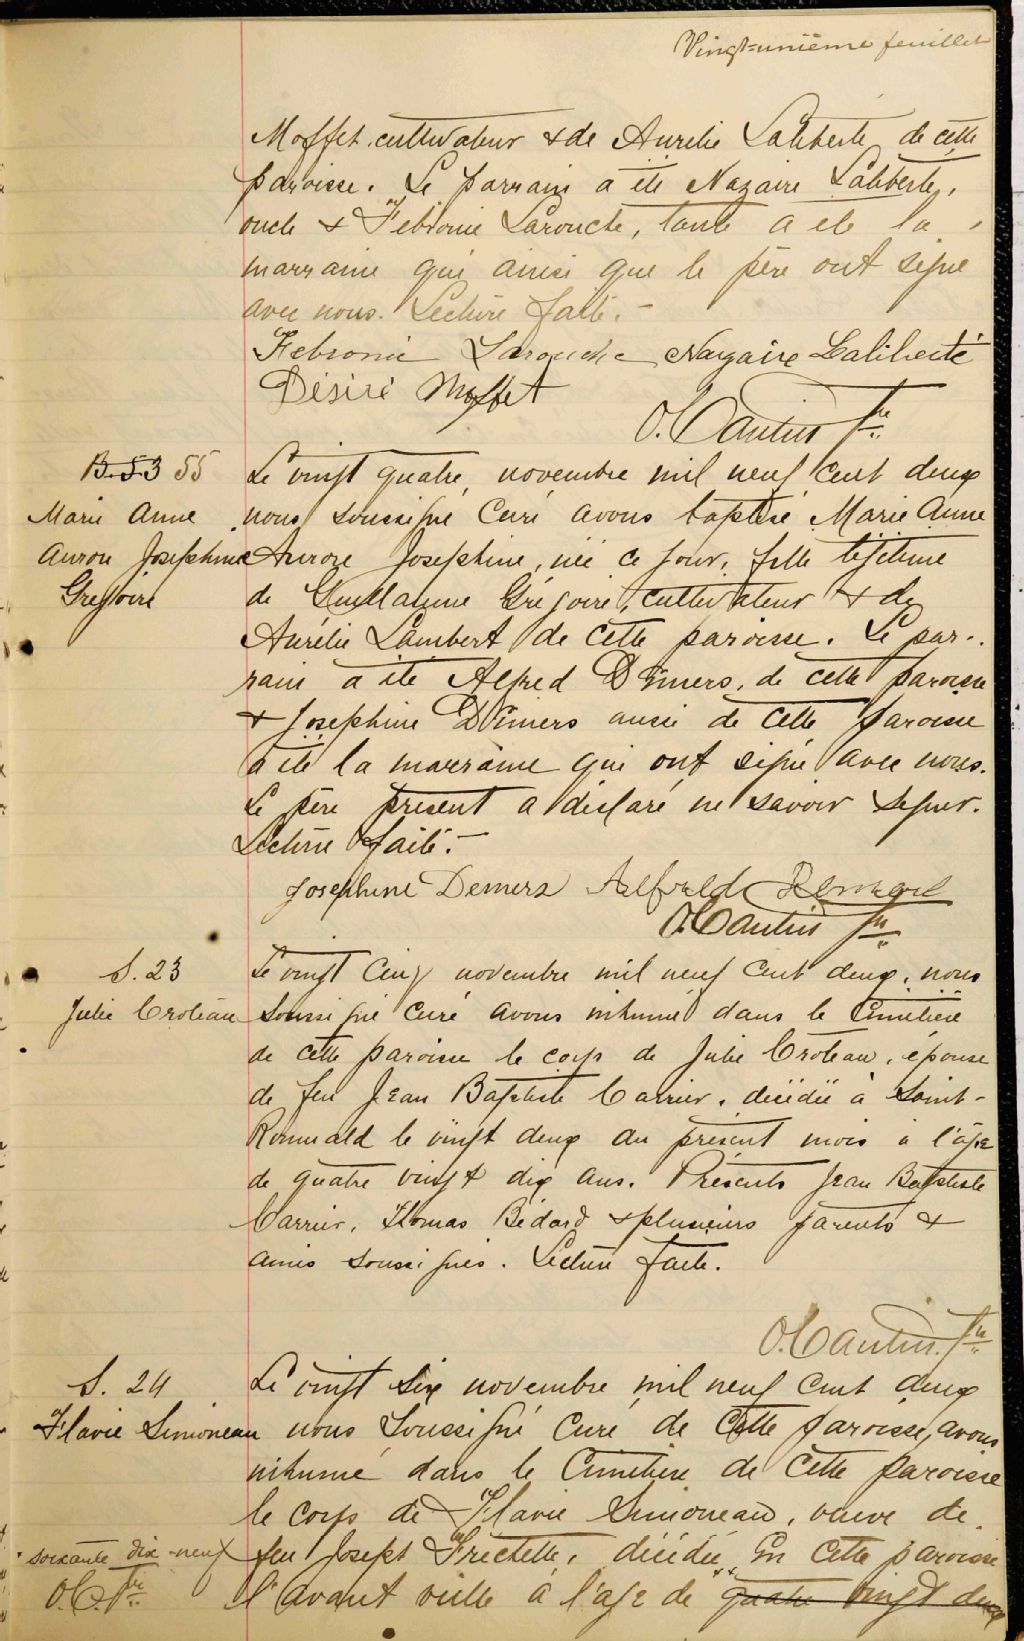 Vingt-unième feuillet
Moffet, cultivateur & de Aurelie Laliberté de cette
paroisse. Le parrain a été Nazaire Laliberté,
oncle & Febronie Larouche, tante a été la
marraine qui ainsi que le père ont signé
avec nous. Lecture faite.-
Febronie Larouche Nazaire Laliberté
Désiré Moffet
O. Cantin Ptre
B. 53 55
Marie Anne
Aurore Josephine
Grégoire
Le vingt quatre, novembre mil neuf cent deux
nous soussigné Curé avons baptisé Marie Anne
Aurore Josephine, née ce jour, fille légitime
de Guillaume Grégoire, cultivateur & de
Aurélie Lambert de cette paroisse. Le par-
rain a été Alfred Demers, de cette paroisse
& Josephine Demers aussi de cette paroisse
a été la marraine qui ont signé avec nous.
Le père présent a déclaré ne savoir signer.
Lecture faite.-
Josephine Demers Alfred
O. Cantin Ptre
S. 23
Julie Croteau
Le vingt cinq novembre mil neuf cent deux, nous
soussigné curé avons inhumé dans le Cimetière
de cette paroisse le corps de Julie Croteau, épouse
de feu Jean Baptiste Carrier, décédée à Saint-
Romuald le vingt deux du présent mois à l'âge
de quatre vingt dix ans. Présents Jean Baptiste
Carrier, Thomas Bédard & plusieurs parents &
amis soussignés. Lecture faite.
O. Cantin. Ptre
S. 24
Flavie Simoneau
Le vingt six novembre mil neuf cent deux
nous Soussigné Curé de cette paroisse, avons
inhumé dans le Cimetière de cette paroisse
le corps de Flavie Simoneau, veuve de
feu Joseph Frechette, décédée en cette paroisse
l'avant veille à l'age de quatre vingt deux
soixante dix-neuf
O.C. Ptre